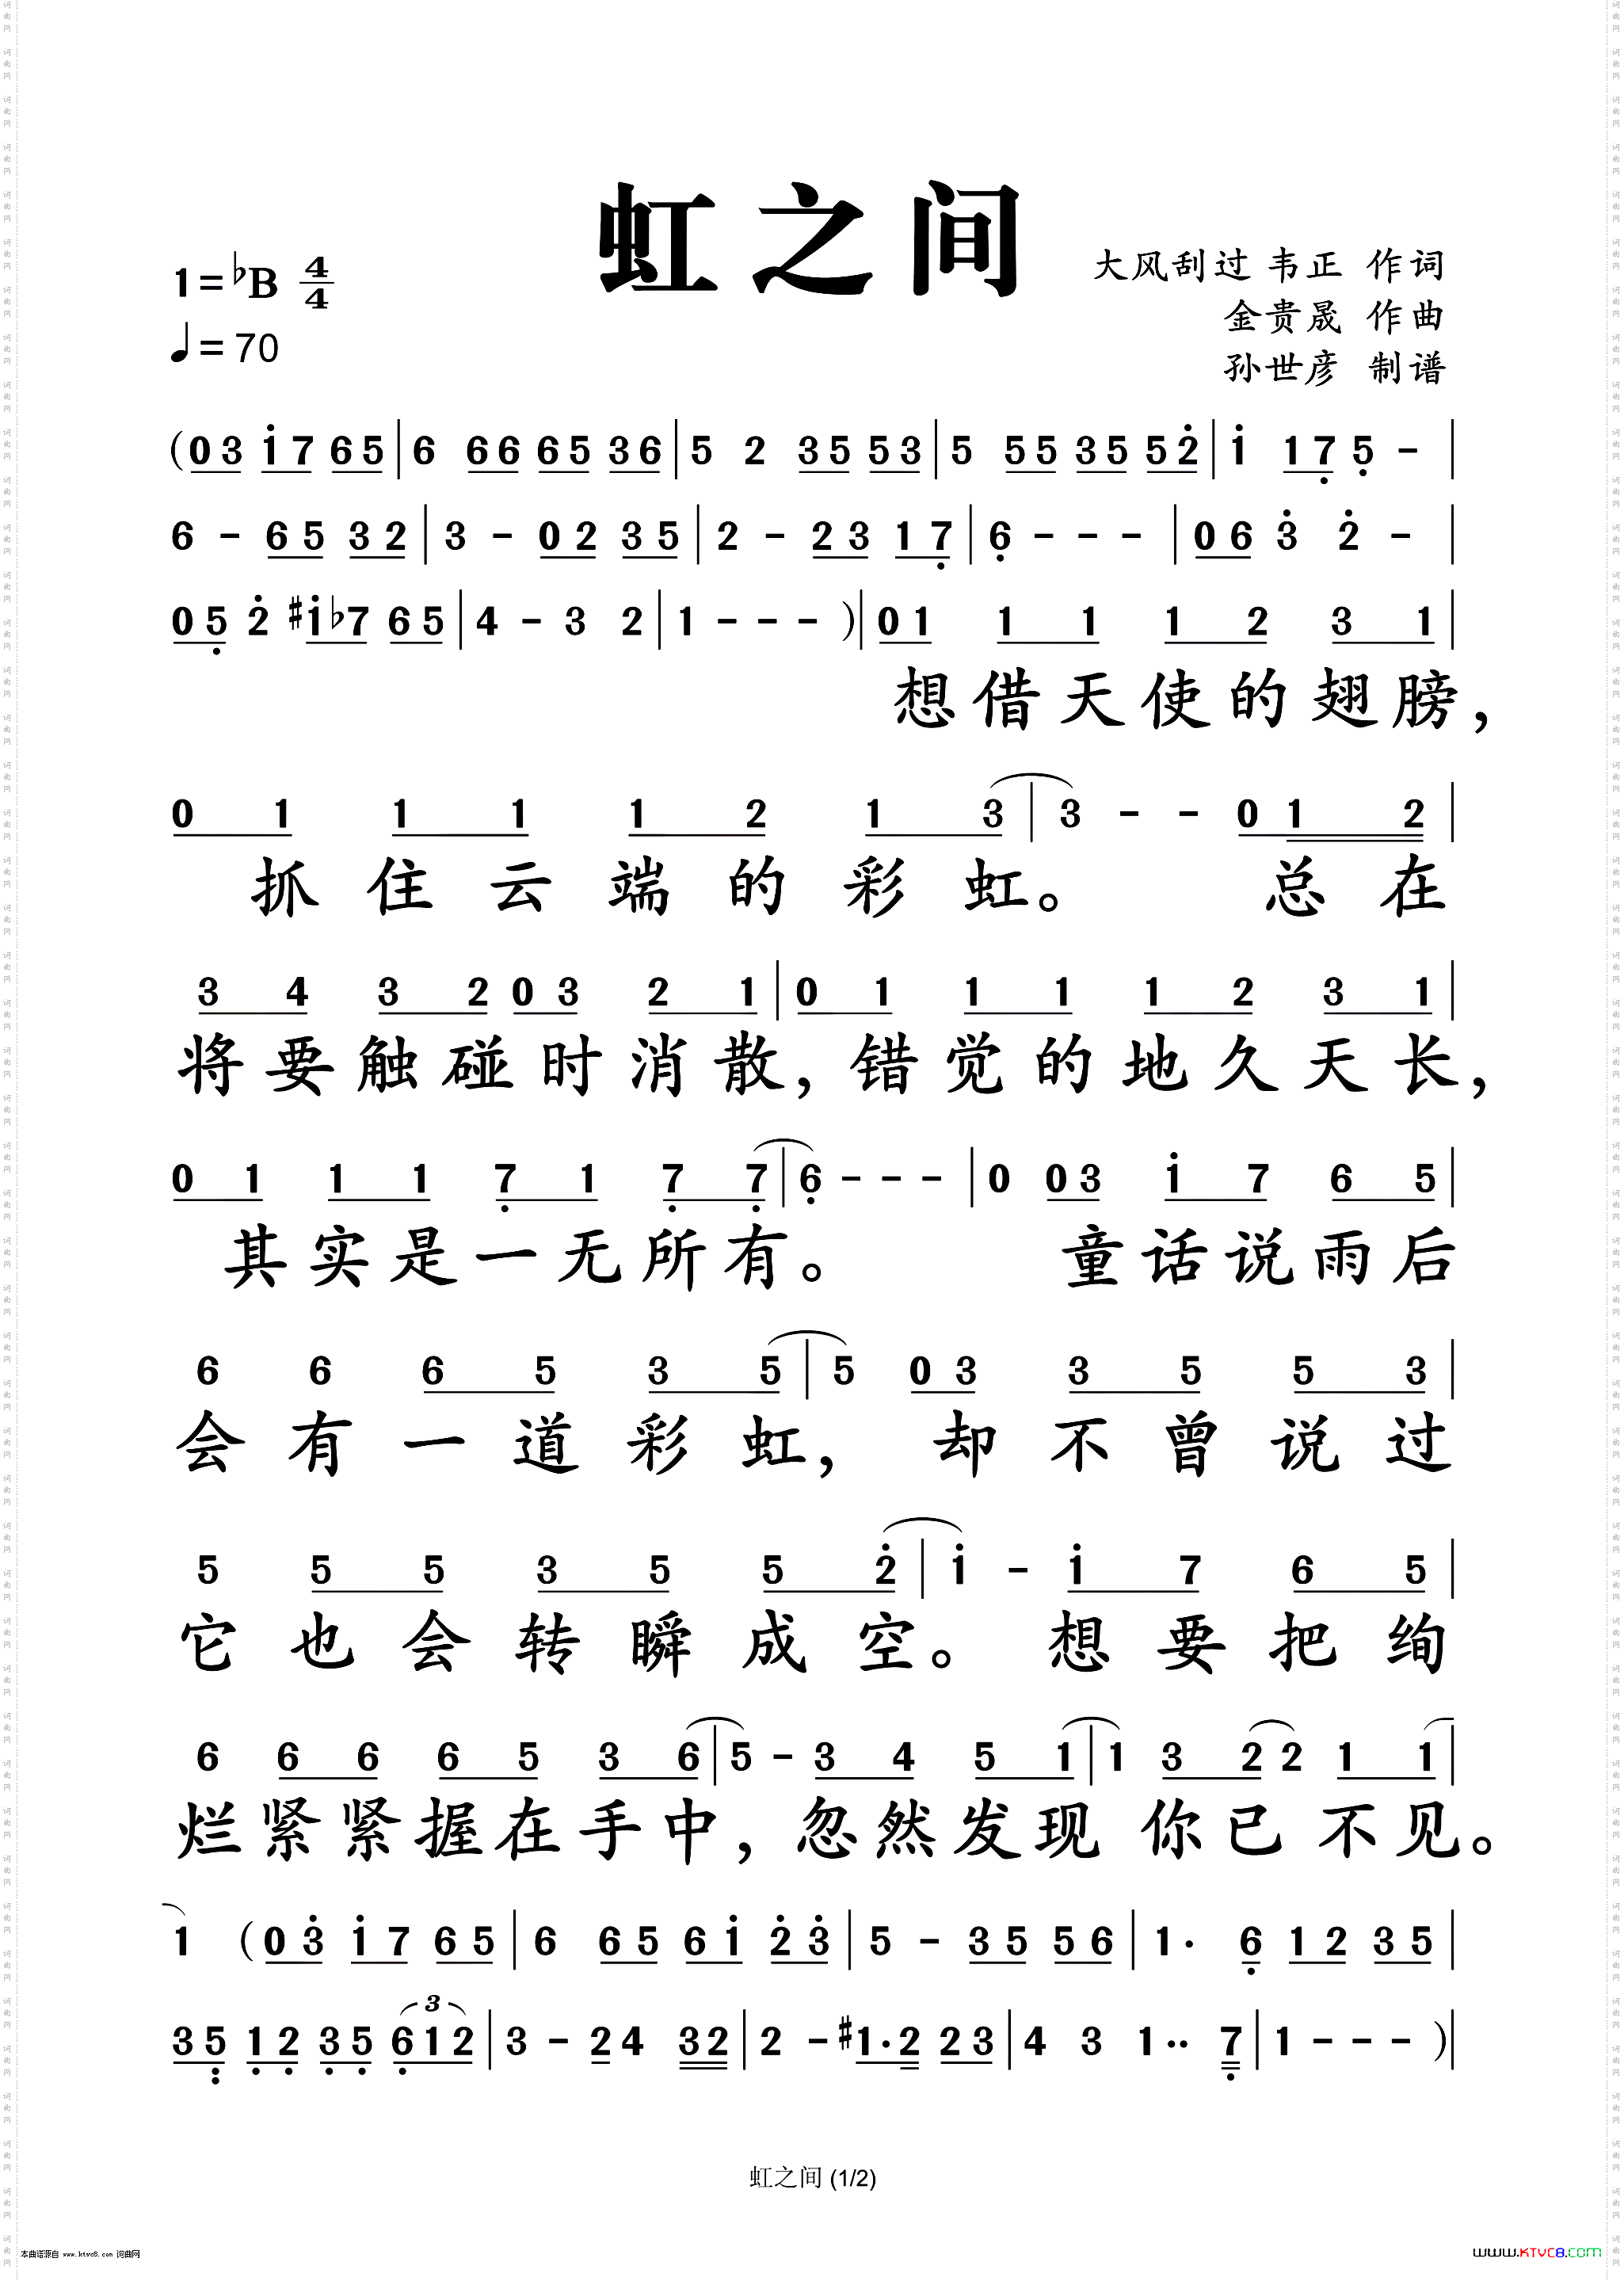 虹之间
1=♭B 4/4
♩=70
大风刮过 韦正 作词
金贵晟 作曲
孙世彦 制谱
(0 3 i 7 6 5 | 6 6 6 6 5 3 6 | 5 2 3 5 5 3 | 5 5 5 3 5 5 2̇ | i 1 7̣ 5̣ - |
6 - 6 5 3 2 | 3 - 0 2 3 5 | 2 - 2 3 1 7̣ | 6̣ - - - | 0 6 3̇ 2̇ - |
0 5̣ 2̇ #i ♭7 6 5 | 4 - 3 2 | 1 - - - )| 0 1 1 1 1 2 3 1 |
想借天使的翅膀,
0 1 1 1 1 2 1 3 | 3 - - 0 1 2 |
抓住云端的彩虹。 总在
3 4 3 2 0 3 2 1 | 0 1 1 1 1 2 3 1 |
将要触碰时消散, 错觉的地久天长,
0 1 1 1 7̣ 1 7̣ 7̣ | 6̣ - - - | 0 0 3 i 7 6 5 |
其实是一无所有。 童话说雨后
6 6 6 5 3 5 | 5 0 3 3 5 5 3 |
会有一道彩虹, 却不曾说过
5 5 5 3 5 5 2̇ | i - i 7 6 5 |
它也会转瞬成空。 想要把绚
6 6 6 6 5 3 6 | 5 - 3 4 5 1 | 1 3 2 2 1 1 |
烂紧紧握在手中, 忽然发现 你已不见。
1 (0 3̇ i 7 6 5 | 6 6 5 6 i 2̇ 3̇ | 5 - 3 5 5 6 | 1· 6̣ 1 2 3 5 |
3 5̣̣ 1̣ 2̣ 3̣ 5̣ 3 6̣ 1 2 | 3 - 2 4 3 2 | 2 - #1· 2 2 3 | 4 3 1·· 7̣ | 1 - - - )|
虹之间 (1/2)
本曲谱源自 www.ktvc8.com 词曲网
www.KTVC8.com